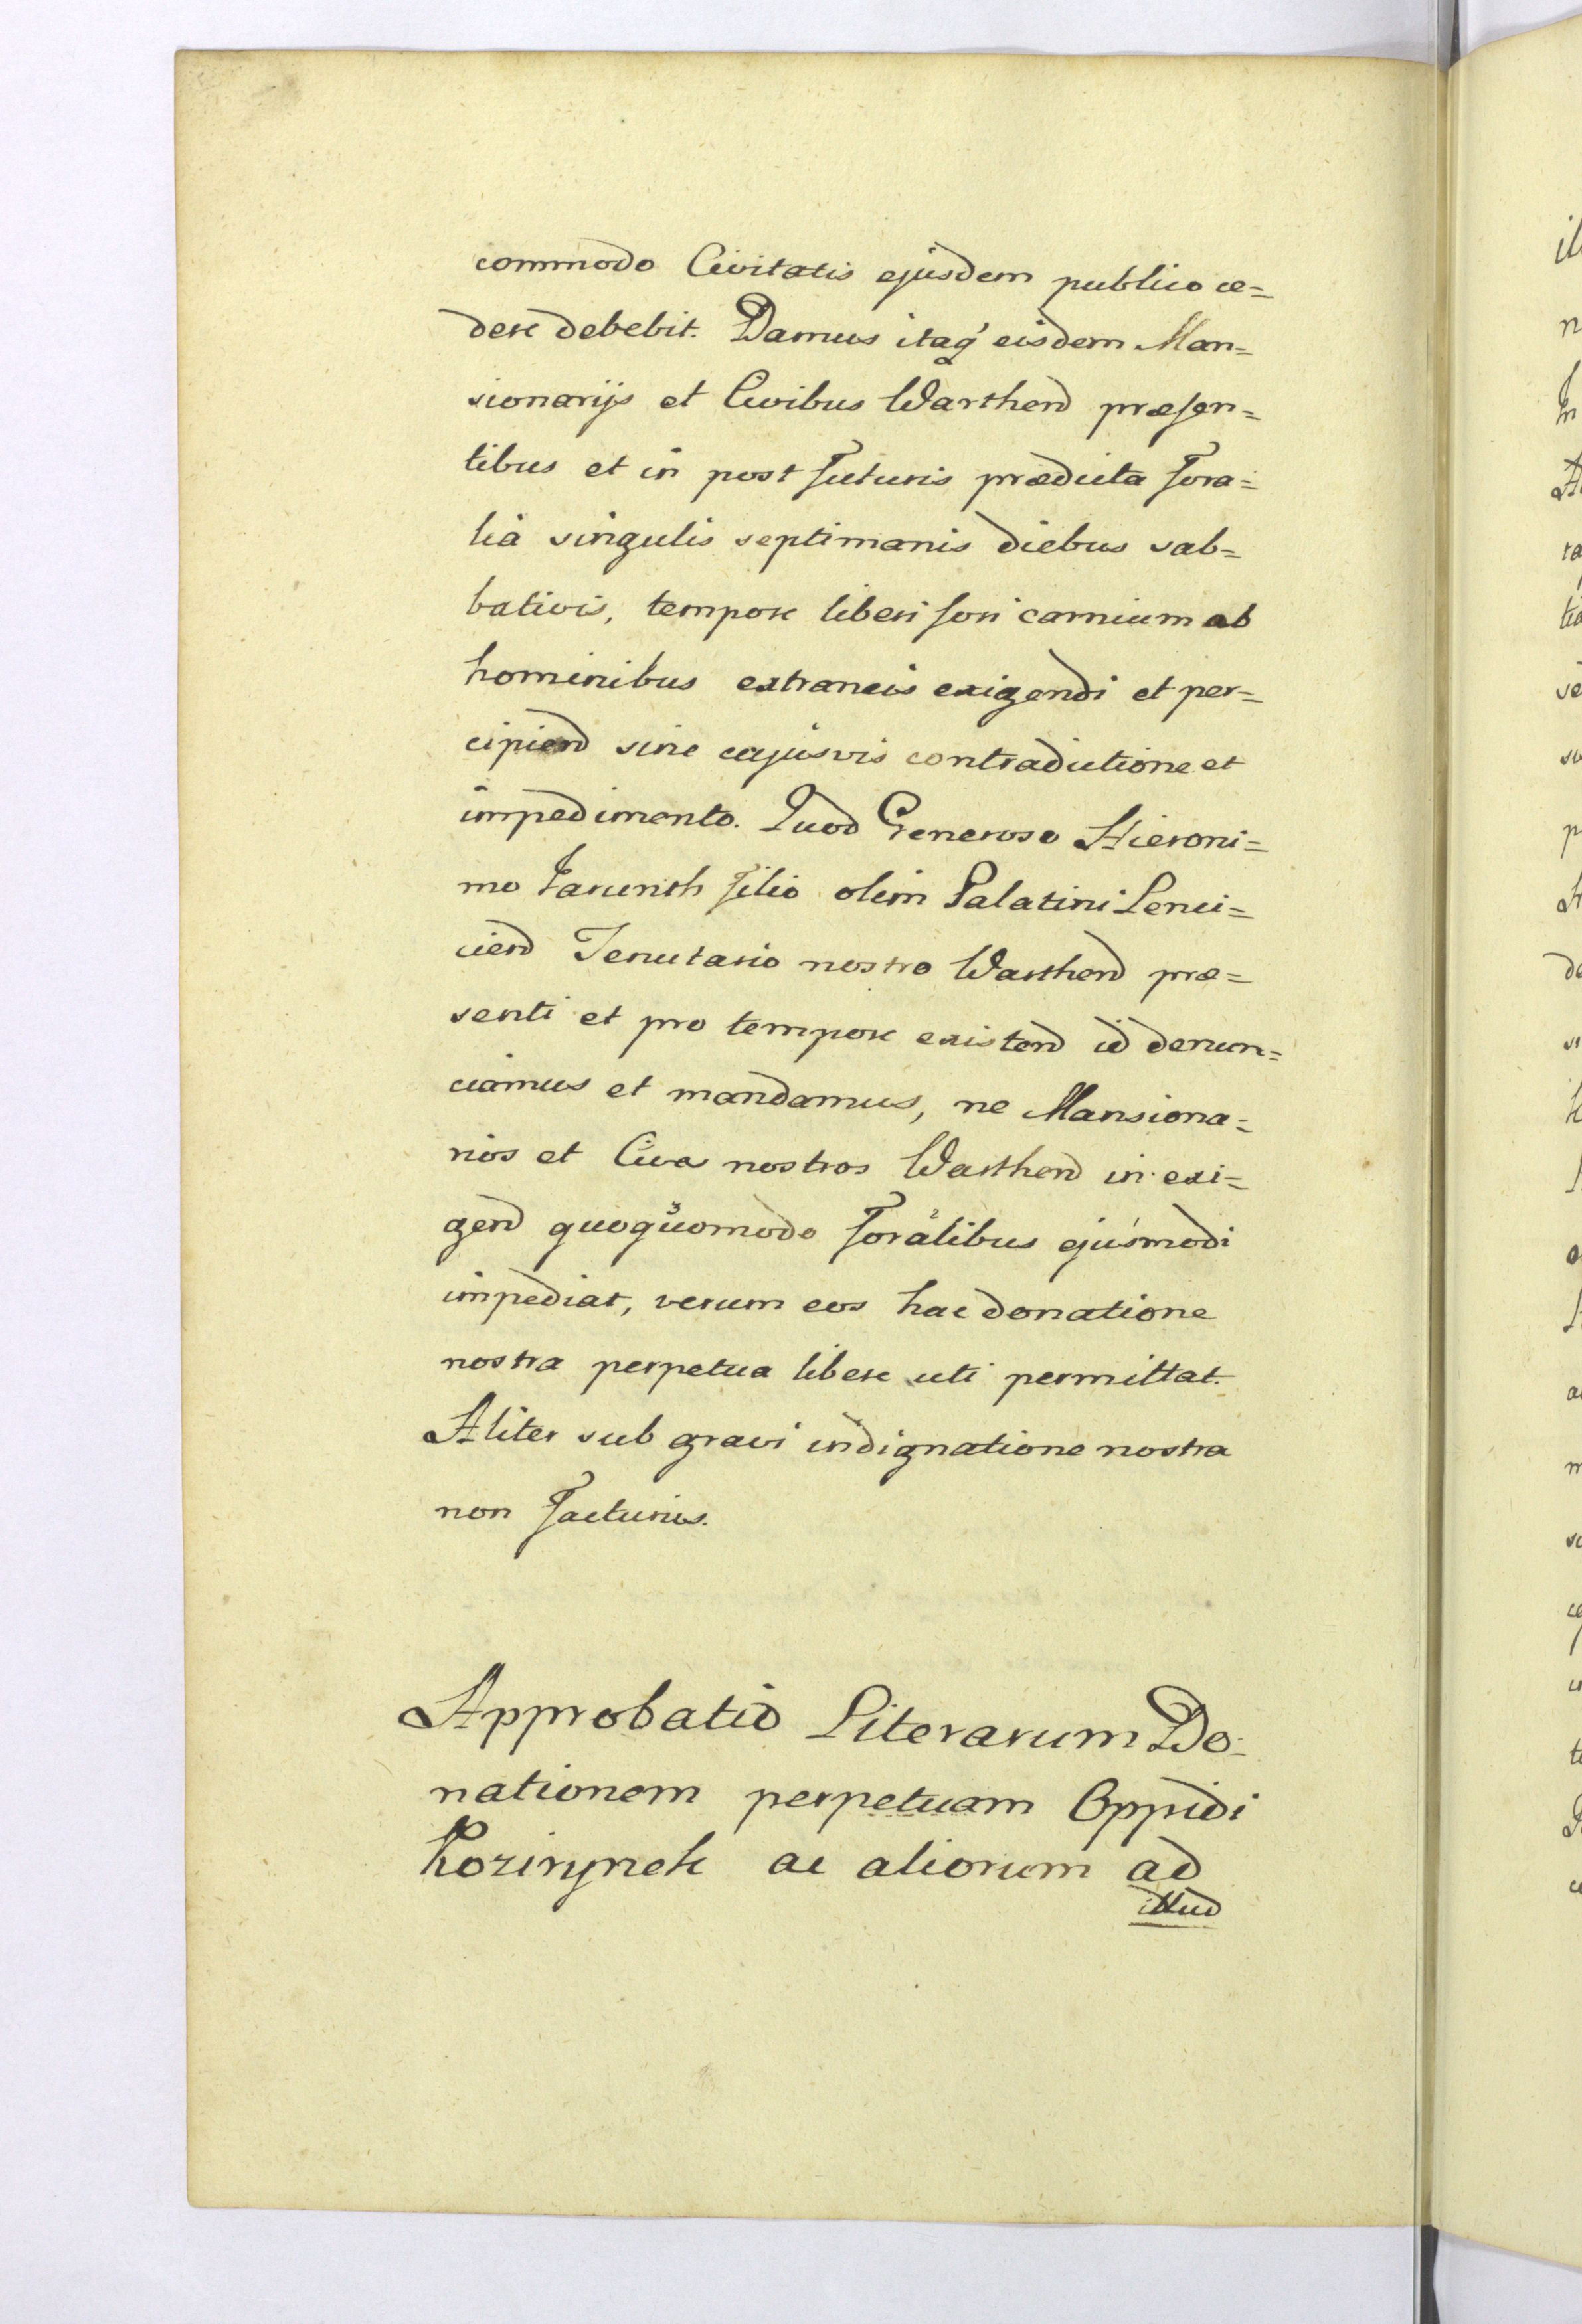 commodo Civitatis ejusdem publico ce=
dere debebit. Damus itaq́ eisdem Man=
sionarijs et Civibus Warthend præsen=
tibus et in post futuris prædicta fora=
lia singulis septimanis diebus sab=
bativis, tempore liberi fori carnium ab
hominibus extraneis exigendi et per=
cipiend sine cujusvis contradictione et
impedimento. Quod Generoso Hieroni=
mo filio olim Palatini Lenci=
ciend Tenutario nostro Warthend præ=
senti et pro tempore existend id denun=
ciamus et mandamus, ne Mansiona=
rios et Cives nostros Warthend in exi=
gend quoquomodo foralibus ejusmodi
impediat, verum eos hac donatione
nostra perpetua libere uti permittat.
Aliter sub gravi indignatione nostra
non facturus.
Approbatio Literarum Do=
nationem perpetuam Oppidi
Kozirynek ac aliorum ad
illud